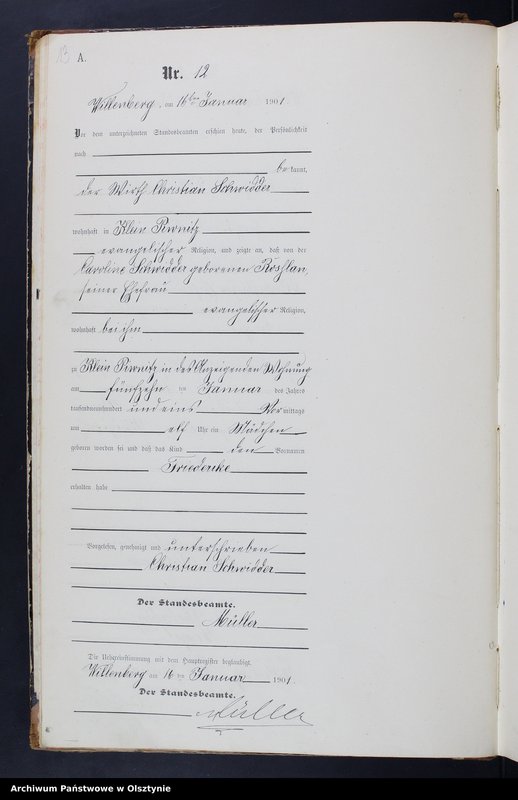 13
A.
Nr. 12
Willenberg, am 16ten Januar 1901.
Vor dem unterzeichneten Standesbeamten erschien heute, der Persönlichkeit
nach
be kannt,
der Wirth Christian Schwidder
wohnhaft in Klein Piwnitz
evangelischer Religion, und zeigte an, daß von der
Caroline Schwidder geborenen Koszlan,
seiner Ehefrau
evangelischer Religion,
wohnhaft bei ihm
zu Klein Piwnitz in des Anzeigenden Wohnung
am fünfzehn ten Januar des Jahres
tausendneunhundert und eins Vor mittags
um elf Uhr ein Mädchen
geboren worden sei und daß das Kind den Vornamen
Friedericke
erhalten habe
Vorgelesen, genehmigt und unterschrieben
Christian Schwidder
Der Standesbeamte.
Müller
Die Uebereinstimmung mit dem Hauptregister beglaubigt.
Willenberg am 16 ten Januar 1901.
Der Standesbeamte.
Müller
Archiwum Państwowe w Olsztynie